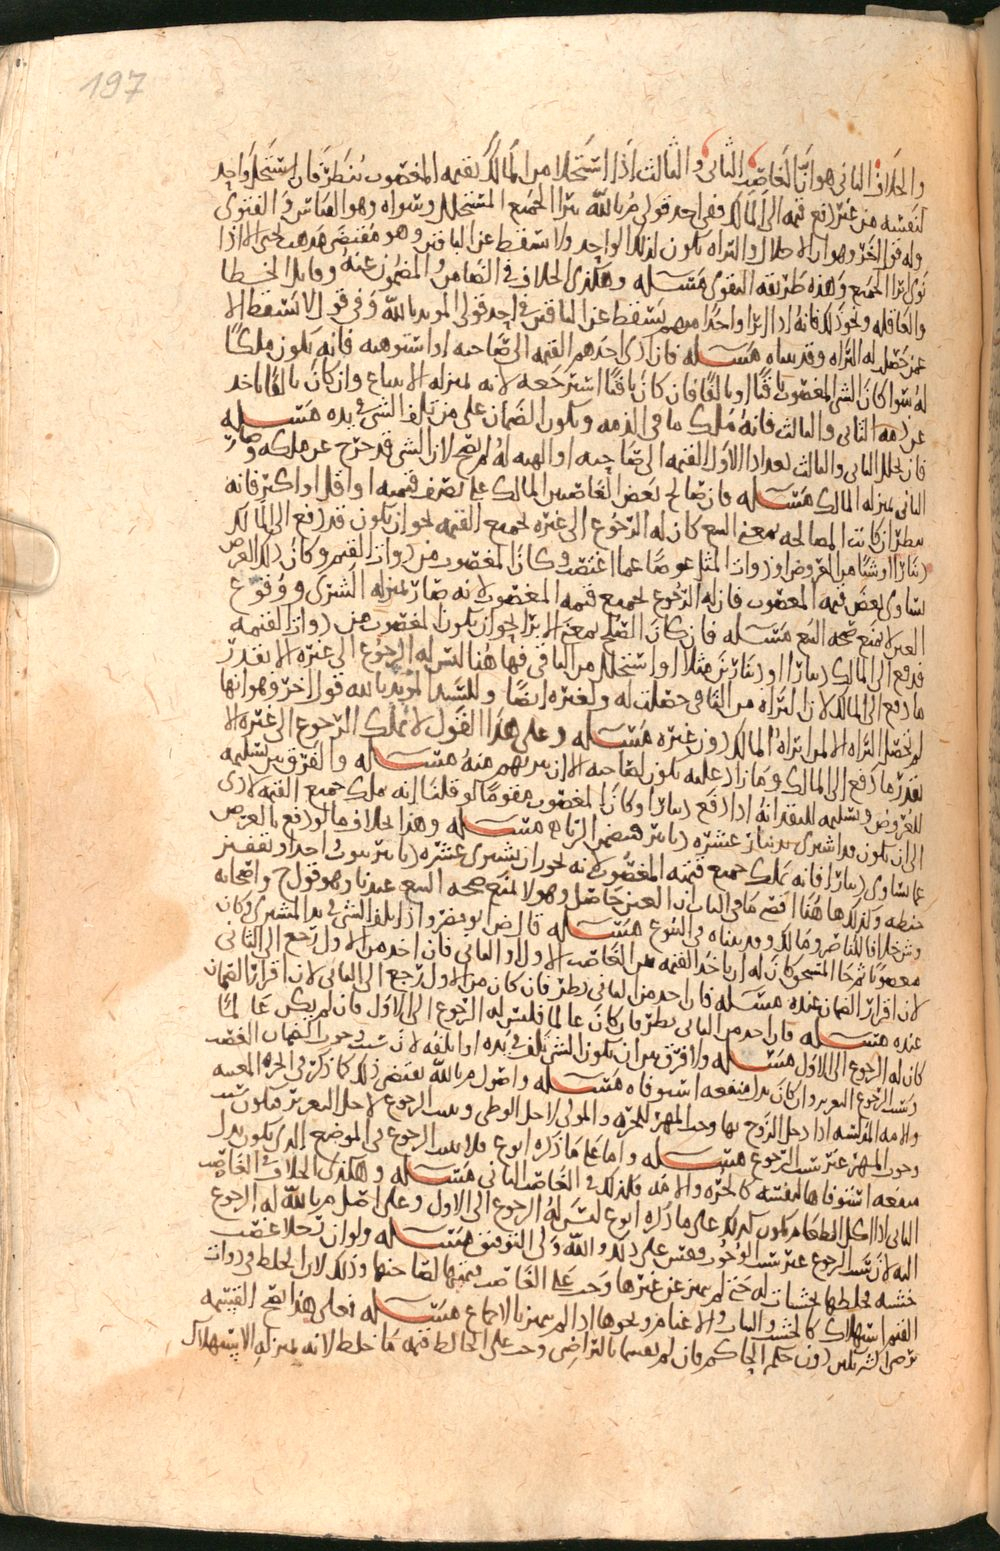 197
والخلاف الثاني هو ان الغاصب الثاني والثالث اذا استحلا من المالك بقيمه المغصوب ينظر فان استحل واحد
لنفسه من غير دفع قيمه الى المالك ففي احد قولي م بالله يبرا الجميع المستحل وسواه وهو القياس والفتوى
وله قول اخر وهو ان الاحلال والبراه تكون لذلك الواحد ولا تسقط عن الباقين وهو مقتضى مذهب يحيى الا اذا
نوى برا الجميع وهذه طريقه التقوى مسله وهكذى الخلاف في الضامن والمضمون عنه وقاتل الخطا
والعاقله ونحو ذلك فانه اذا ابرا واحدا منهم يسقط عن الباقين في احد قولي المويد بالله وفي قول لا تسقط الا
عمن حصل له البراه وقد بيناه مسله فان ادى احدهم القيمه الى صاحبه او استوهبه فانه يكون ملكا
له سوا كان الشي المغصوب باقيا او تالفا فان كان باقيا استرجعه لانه بمنزله الابتياع وان كان تالفا
عن ذمه الثاني والثالث فانه ملك ما في الذمه ويكون الضمان على من تلف الشي في يده مسله
فان تحلل الثاني والثالث بعد اداء الاول القيمه الى صاحبه او الهبه له لم يصح لان الشي قد خرج عن ملكه وصار
الثاني بمنزله المالك مسله فان صالح بعض الغاصبين المالك على نصف قيمته او اقل او اكثر فانه
ينظر ان كانت المصالحه بمعنى البيع كان له الرجوع الى غيره بجميع القيمه نحو ان يكون قد دفع الى المالك
دينارا او شيا من العروض او ذوات المثل عوضا عما اغتصب وكان المغصوب من ذوات القيم وكان ذلك العرض
يساوي بعض قيمه المغصوب فان له الرجوع بجميع قيمه المغصوب لانه صار بمنزله الشرى ووقوع
الغبن لا يمنع صحه البيع مسله فان كان الصلح بمعنى الابرا نحو ان يكون المغصوب من ذوات القيمه
فدفع الى المالك دينارا او دينارين مثلا او استحل من الباقي فها هنا ليس له الرجوع الى غيره الا بقدر
ما دفع الى المالك لان البراه من الباقي حصلت له ولغيره ايضا وللسيد المويد بالله قول اخر وهو انها
لم تحصل البراه الا لمن ابراه المالك دون غيره مسله وعلى هذا القول لا يملك الرجوع الى غيره الا
بقدر ما دفع الى المالك وما زاد عليه يكون لصاحبه الا ان يبريهم منه مسله والفرق بين تسليمه
للعروض وتسليمه للنقد انه اذا دفع دينارا وكان المغصوب مقوما لو قلنا انه يملك جميع القيمه لادى
الى ان يكون قد اشترى بدينار عشره دنانير فتضمن الربا مسله وهذا بخلاف ما لو دفع بالعرض
ما يساوي دينارا فانه يملك جميع قيمه المغصوب لانه يجوز ان يشترى عشره دنانير بثوب واحد او بقفيز
حنطه وكذلك ها هنا اقصى ما في الباب ان الغبن حاصل وهو لا يمنع صحه البيع عندنا وهو قول ح واصحابه
وش خلافا للناصر ومالك وقد بيناه في البيوع مسله قال ض ابو مضر واذا تلف الشي في يد المشتري وكان
مغصوبا ثم جا المستحق كان له ان ياخذ القيمه من الغاصب الاول او الثاني فان اخذ من الاول رجع الى الثاني
لان اقرار الضمان عنده مسله فان اخذ من الثاني ينظر فان كان من الاول رجع الى الثاني لان اقرار الضمان
عنده مسله فان اخذ من الثاني ينظر فان كان عالما فليس له الرجوع الى الاول فان لم يكن عالما
كان له الرجوع الى الاول مسله ولا فرق بين ان يكون الشي تلف في يده او اتلفه لان سبب وجوب الضمان الغصب
وسبب الرجوع التغرير وان كان بدل منفعه استوفاه مسله واصول م بالله تقتضي ذلك كما ذكر في الحره المغيبه
والامه المدلسه اذا دخل الزوج بها وجب المهر للحره والمولى لاجل الوطي وثبت الرجوع لاجل التغرير فيكون سبب
وجوب المهر غير سبب الرجوع مسله واما على ما ذكره ابو ع فلا يثبت الرجوع في الموضع الذي يكون بدل
منفعه استوفاها لنفسه كالحره والامه فكذلك في الغاصب الثاني مسله وهكذى الخلاف في الغاصب
الثاني اذا اكل الطعام يكون كذلك على ما ذكره ابو ع ليس له الرجوع الى الاول وعلى اصل م بالله له الرجوع
اليه لان سبب الرجوع غير سبب الوجوب فقس على ذلك والله ولي التوفيق مسله ولو ان رجلا غصب
خشبه فخلطها بخشبات له حتى لم يميز عن غيرها وجب على الغاصب قيمتها لصاحبها وذلك لان الخلط في ذوات
القيم استهلاك كالخشب والثياب والاغنام ونحوها اذا لم يميز بالاجماع مسله فعلى هذا تصح القسمه
بتراض الشريكين دون حكم الحاكم فان لم يقسما بالتراضي وجب على الخالط قيمه ما خلط لانه بمنزله الاستهلاك